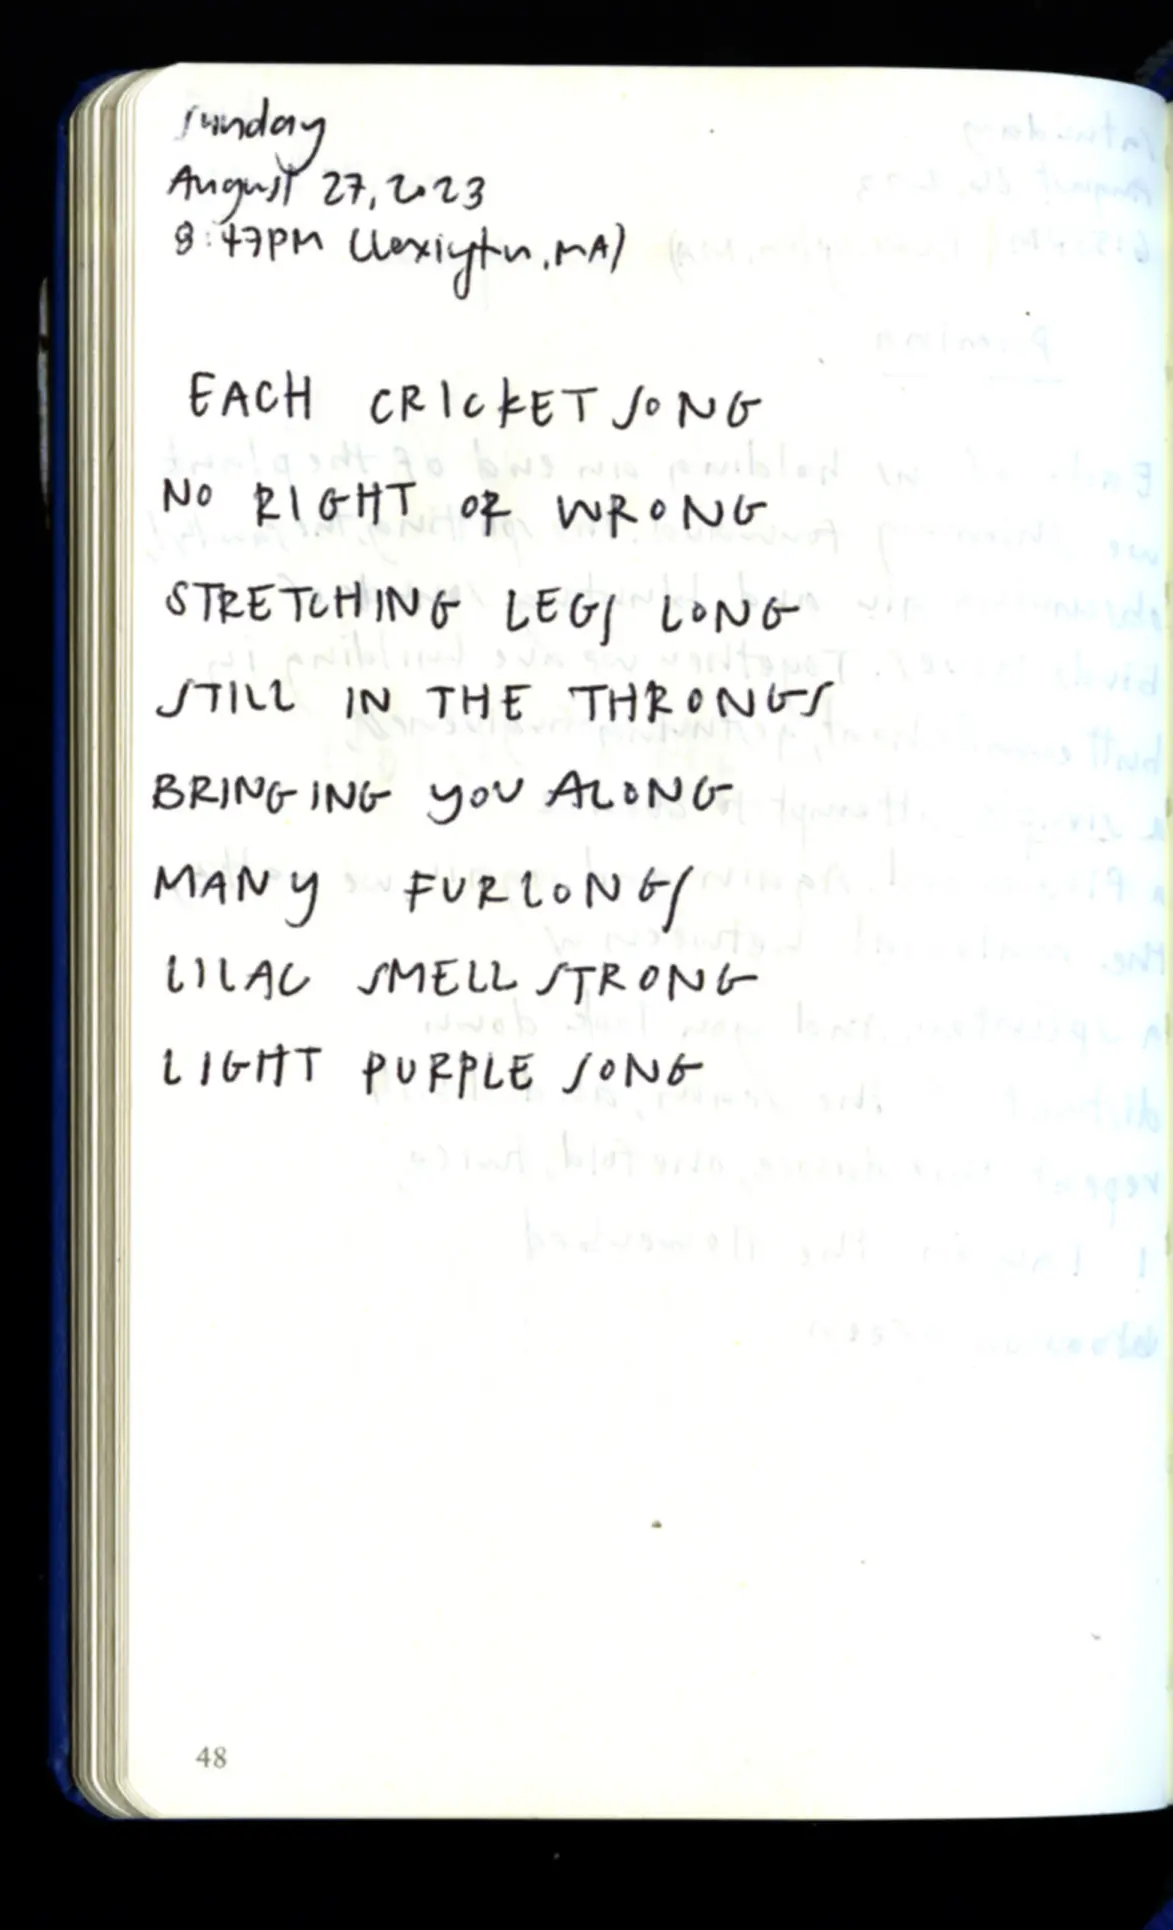 Sunday
August 27, 2023
8:47PM (Lexington, MA)
EACH CRICKET SONG
NO RIGHT OR WRONG
STRETCHING LEGS LONG
STILL IN THE THRONGS
BRINGING YOU ALONG
MANY FURLONGS
LILAC SMELL STRONG
LIGHT PURPLE SONG
48